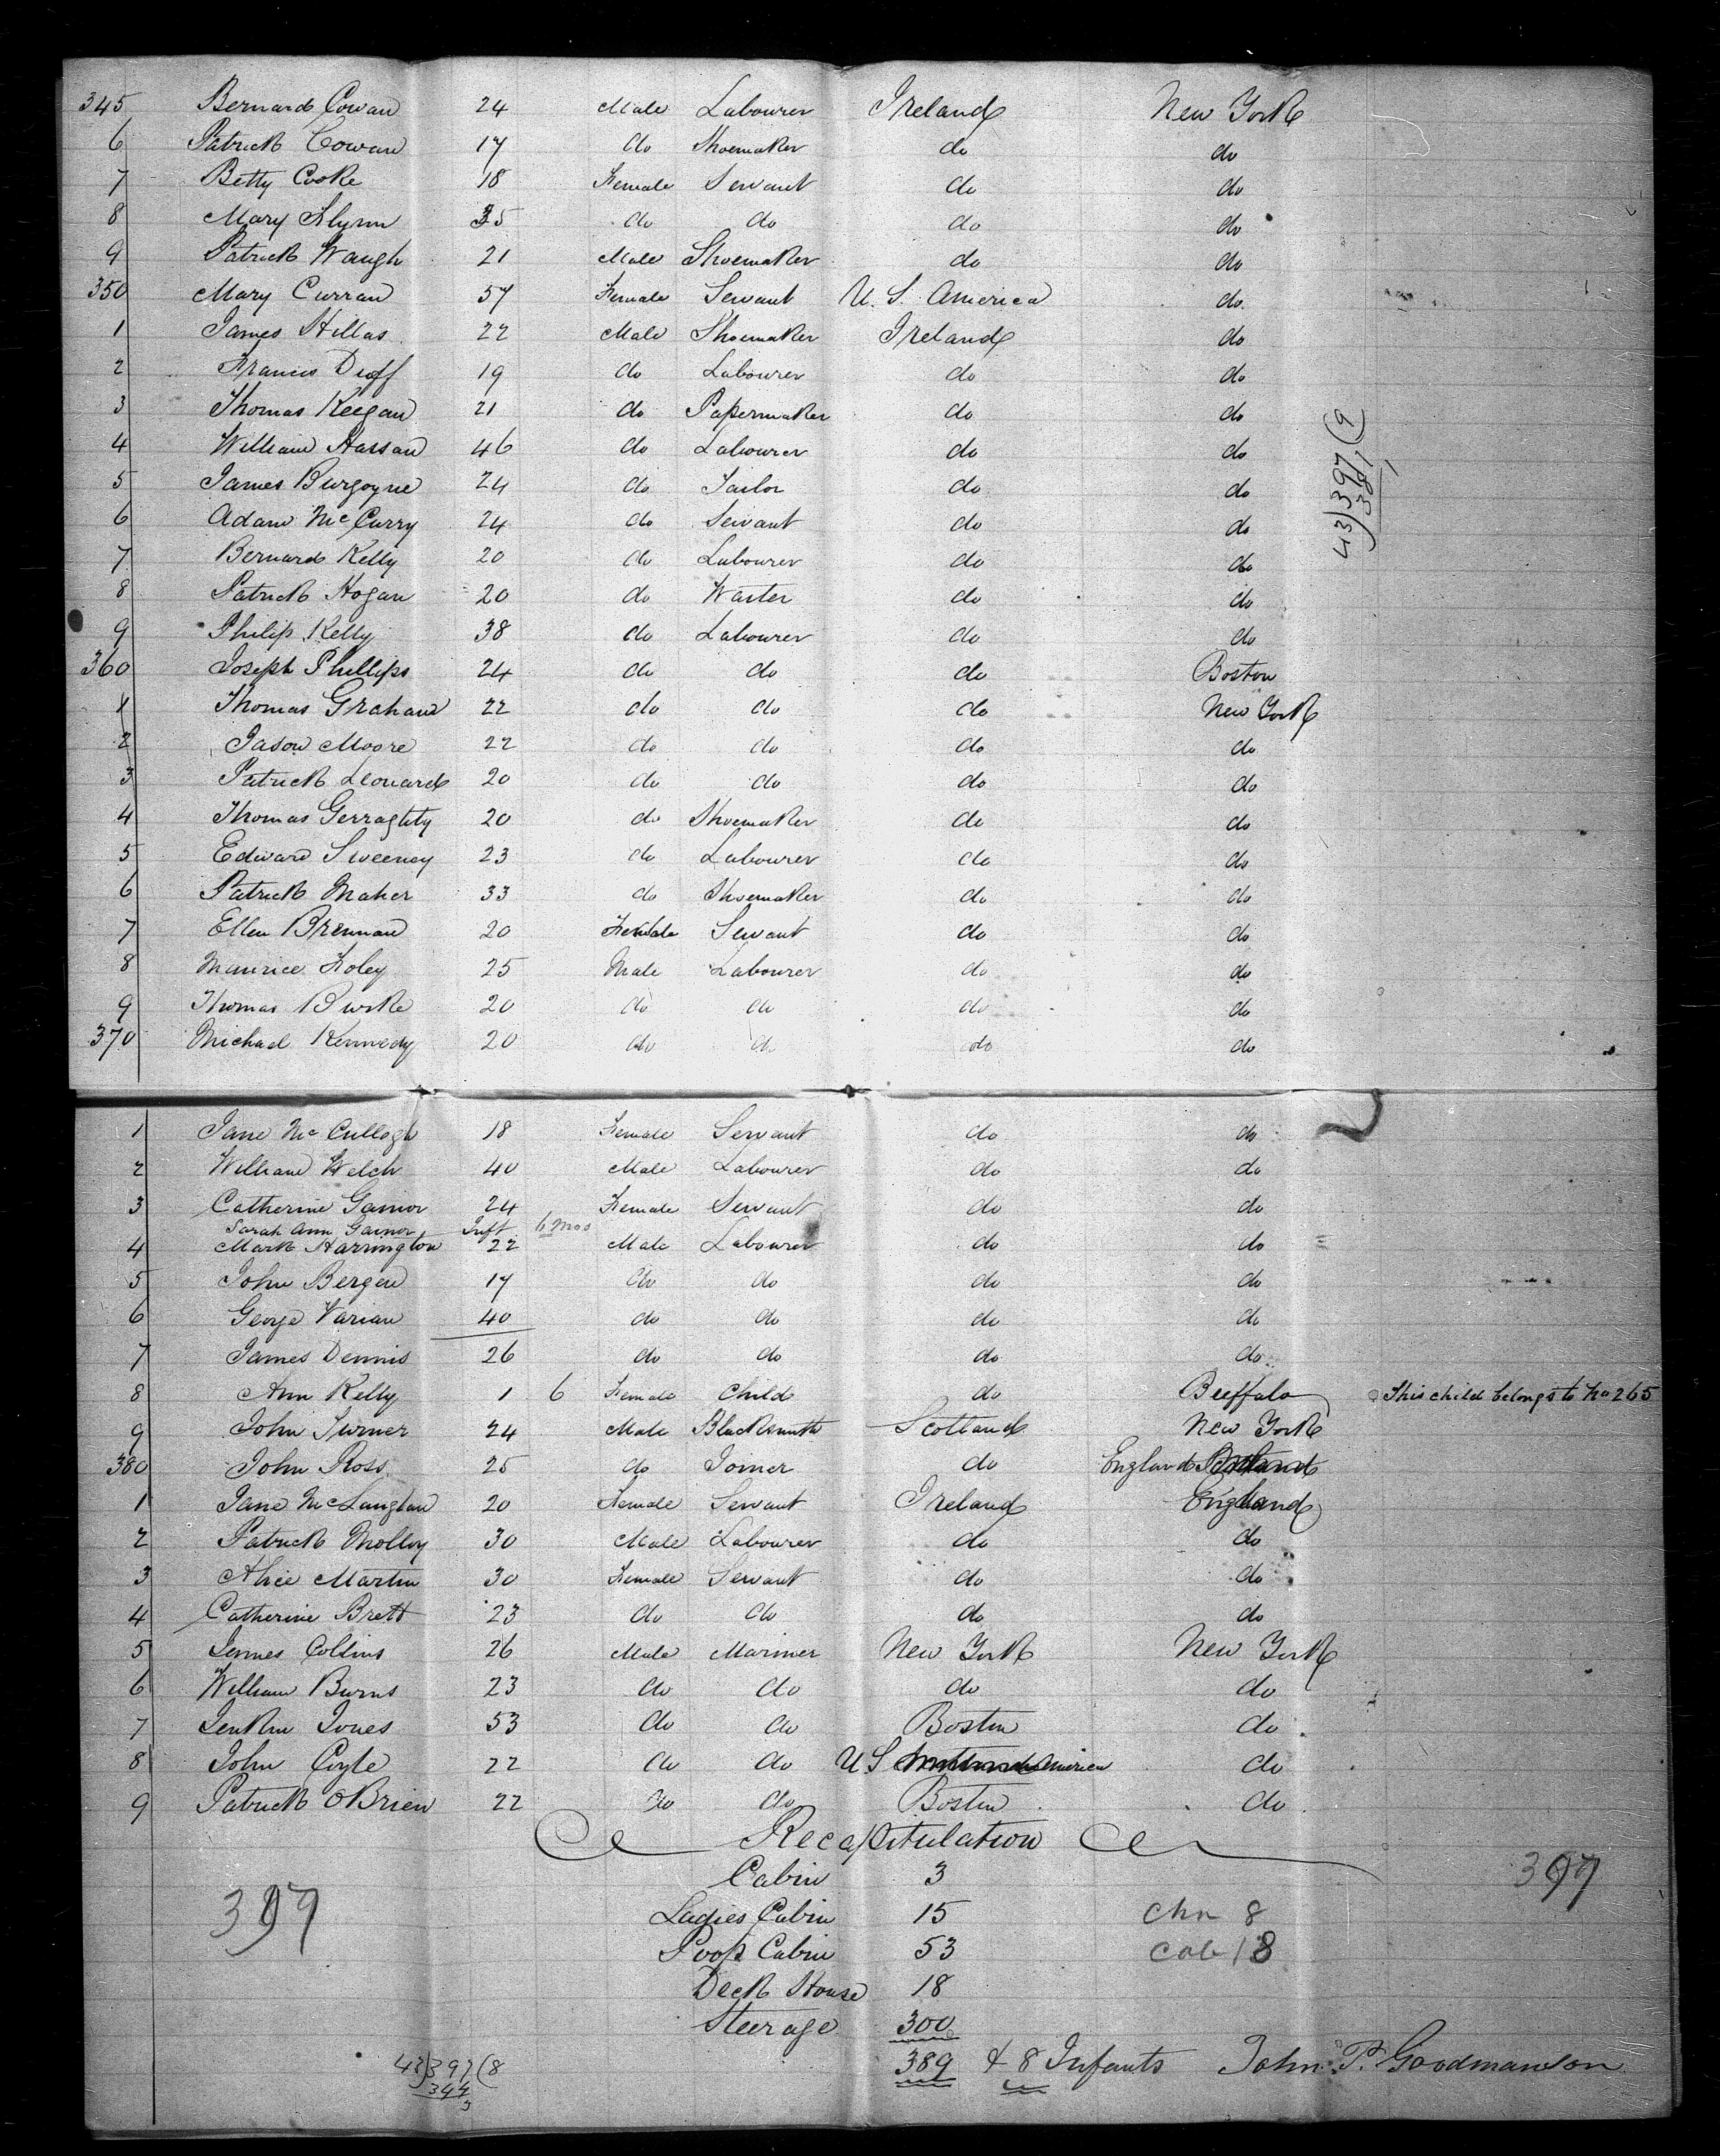 345 Bernard Cowan 24 Male Labourer Ireland New York
6 Patrick Cowan 17 do Shoemaker do do
7 Betty Cooke 18 Female Servant do do
8 Mary Flynn 35 do do do do
9 Patrick Waugh 21 Male Shoemaker do do
350 Mary Curran 57 Female Servant U. S. America do
1 James Hillas 22 Male Shoemaker Ireland do
2 Francis Duff 19 do Labourer do do
3 Thomas Keegan 21 do Papermaker do do
4 William Hassan 46 do Labourer do do
5 James Burgoyne 24 do Tailor do do
6 Adam McCurry 24 do Servant do do
7 Bernard Kelly 20 do Labourer do do
8 Patrick Hogan 20 do Waiter do do
9 Philip Kelly 38 do Labourer do do
360 Joseph Phillips 24 do do do Boston
1 Thomas Graham 22 do do do New York
2 Jason Moore 22 do do do do
3 Patrick Leonard 20 do do do do
4 Thomas Gerraghty 20 do Shoemaker do do
5 Edward Sweeney 23 do Labourer do do
6 Patrick Maher 33 do Shoemaker do do
7 Ellen Brennan 20 Female Servant do do
8 Maurice Foley 25 Male Labourer do do
9 Thomas Burke 20 do do do do
370 Michael Kennedy 20 do do do do
43)397(9
387
1 Jane McCullogh 18 Female Servant do do
2 William Welch 40 Male Labourer do do
3 Catherine Gainor 24 Female Servant do do
Sarah Ann Gainor Inft 6 mos
4 Mark Harrington 22 Male Labourer do do
5 John Bergen 17 do do do do
6 George Varian 40 do do do do
7 James Dennis 26 do do do do
8 Ann Kelly 1 6 Female Child do Buffalo This child belongs to No 265
9 John Turner 24 Male Blacksmith Scotland New York
380 John Ross 25 do Joiner do England
1 Jane McLanglan 20 Female Servant Ireland England
2 Patrick Molloy 30 Male Labourer do do
3 Alice Martin 30 Female Servant do do
4 Catherine Brett 23 do do do do
5 James Collins 26 Male Mariner New York New York
6 William Burns 23 do do do do
7 Jenkin Jones 53 do do Boston do
8 John Coyle 22 do do U S America do
9 Patrick OBrien 22 do do Boston do
Recapitulation
Cabin 3 397
Ladies Cabin 15 Chn 8
397 Poop Cabin 53 Cab 18
Deck House 18
Steerage 300
389 & 8 Infants John P. Goodmanson
43)397(8
344